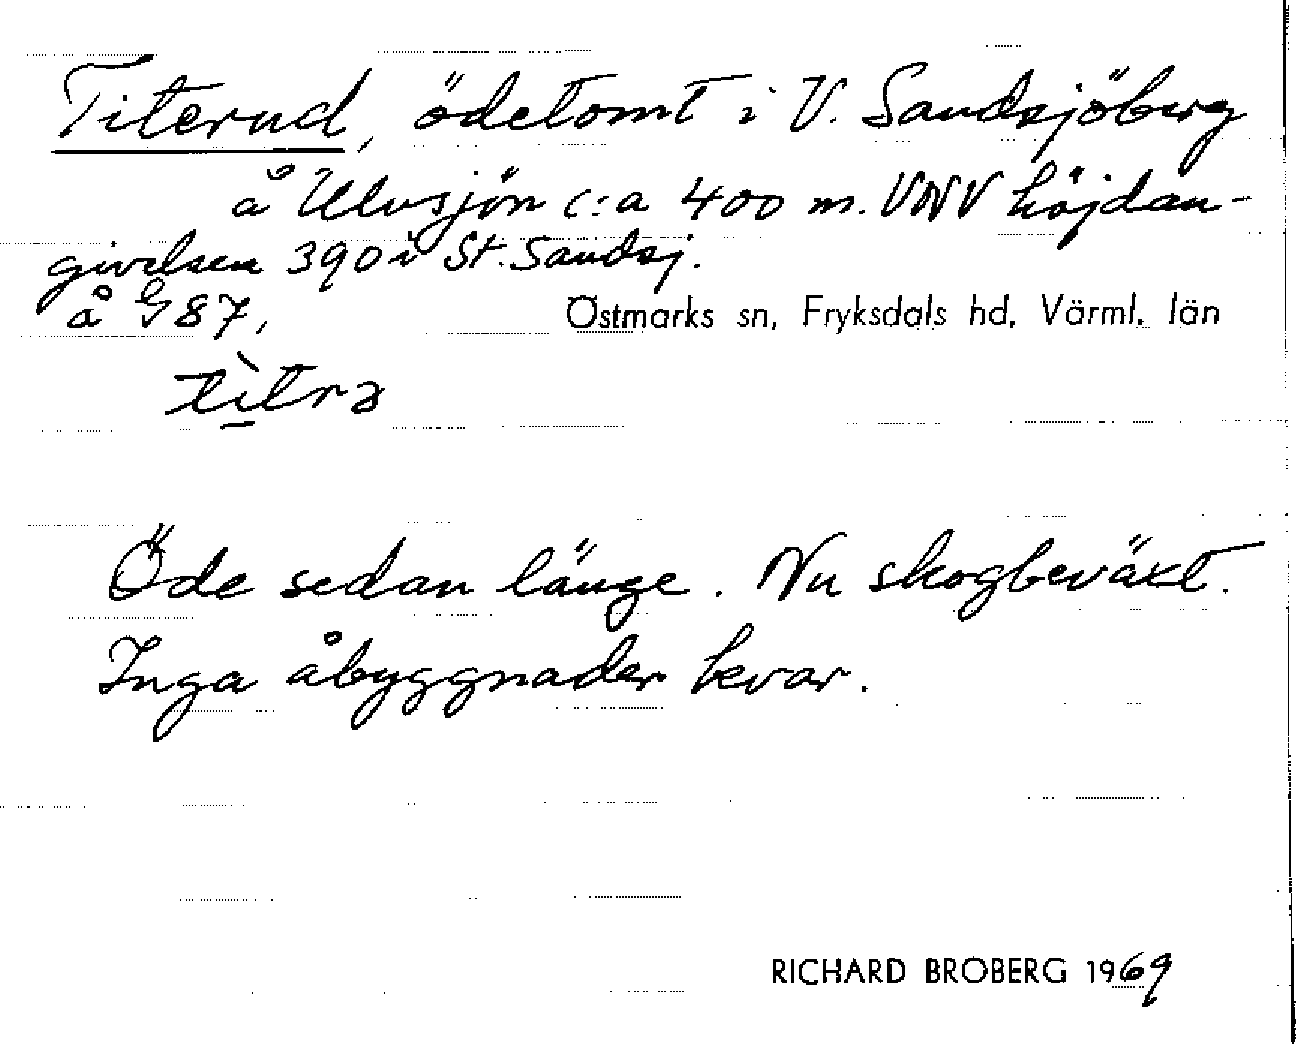 Titerud, ödetomt i V. Sandsjöberg
å Ulvsjön c:a 400 m. VNV höjdan-
givelsen 390 i St. Sandsj.
å G 87,
Östmarks sn, Fryksdals hd, Värml. län
tìtrə
Öde sedan länge. Nu skogbeväxt.
Inga åbyggnader kvar.
RICHARD BROBERG 1969